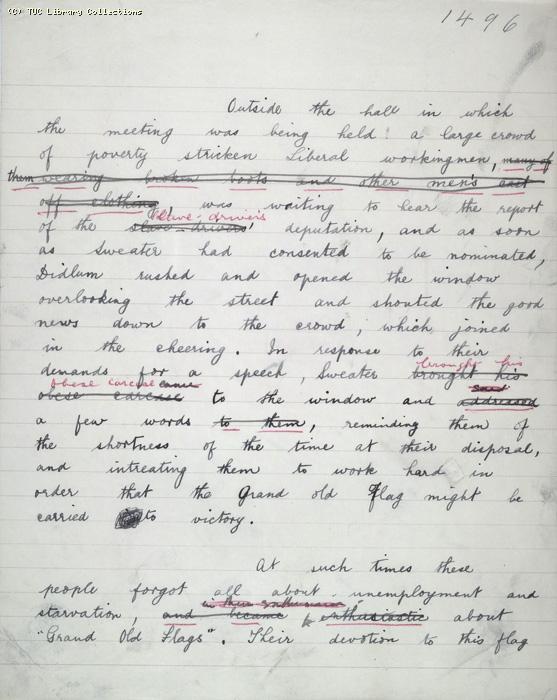 (C) TUC Library Collections
1496
Outside the hall in which
the meeting was being held a large crowd
of poverty stricken Liberal workingmen, many of
them wearing broken boots and other men's cast
off clothing, was waiting to hear the report
Slave-driver's
of the slave-drivers' deputation, and as soon
as Sweater had consented to be nominated,
Didlum rushed and opened the window
overlooking the street and shouted the good
news down to the crowd, which joined
in the cheering. In response to their
brought his
demands for a speech, Sweater brought his
obese carcase came said
obese carcase to the window and addressed
a few words to them, reminding them of
the shortness of the time at their disposal,
and intreating them to work hard in
order that the Grand old Flag might be
carried to victory.
At such times these
people forgot all about unemployment and
in their enthusiasm
starvation, and became enthusiastic about
"Grand Old Flags". Their devotion to this flag